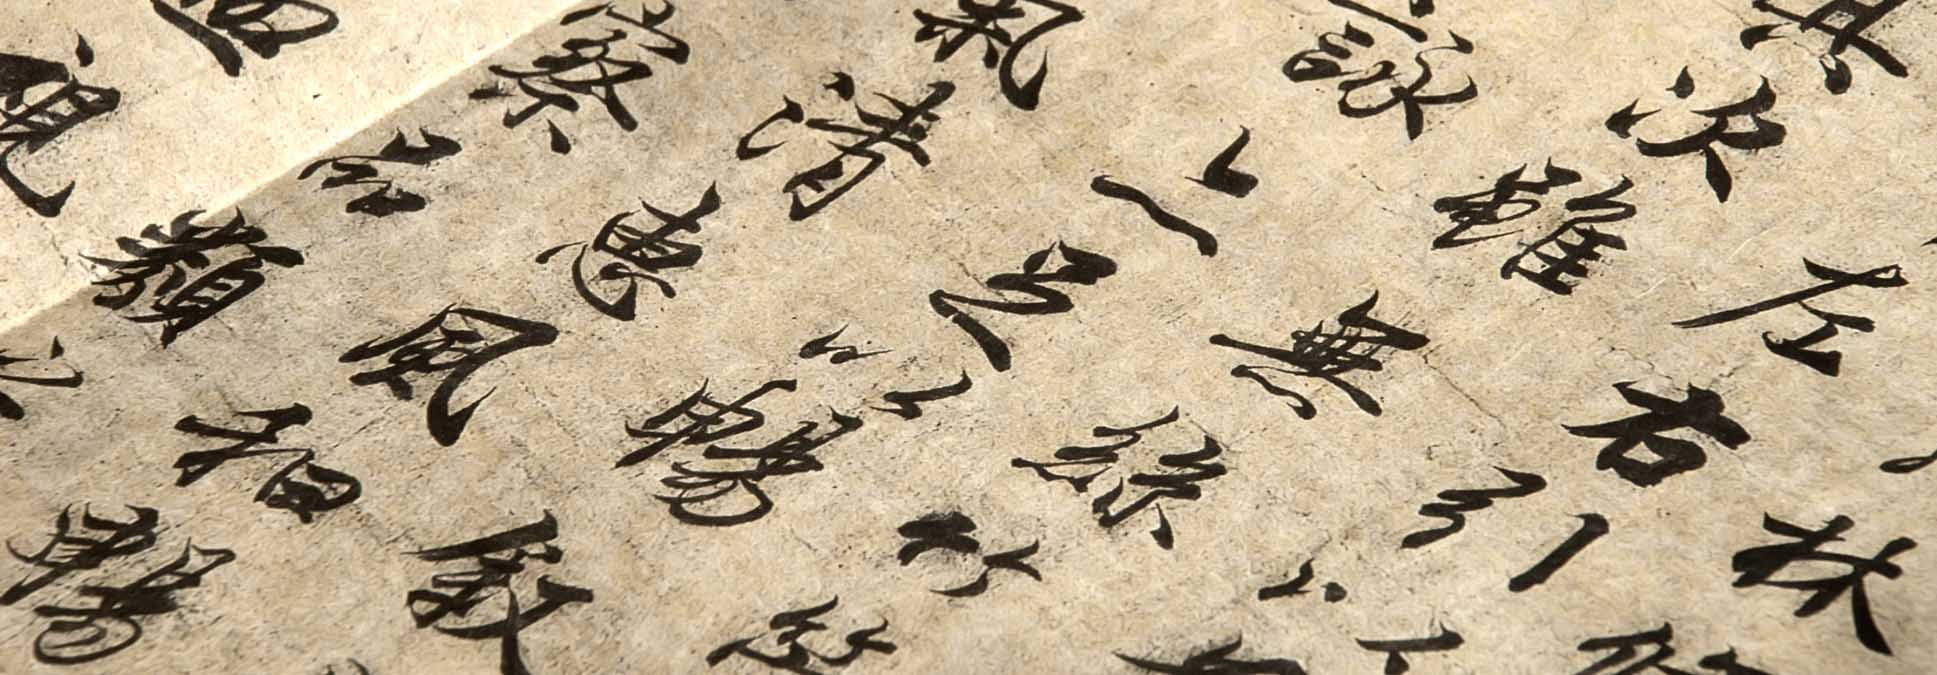 林
左右引以
其次雖無絲竹
詠亦足以暢敘
氣清惠風和暢
察品類之
視